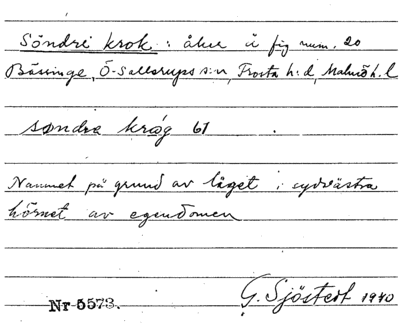 Söndre krok : åker å fig num. 20
Bässinge, Ö-Sallerups s:n, Frosta h:d, Malmö h. l
søndre krǿg 61
Namnet på grund av läget i sydvästra
hörnet av egendomen
G. Sjöstedt 1940
Nr 5573.